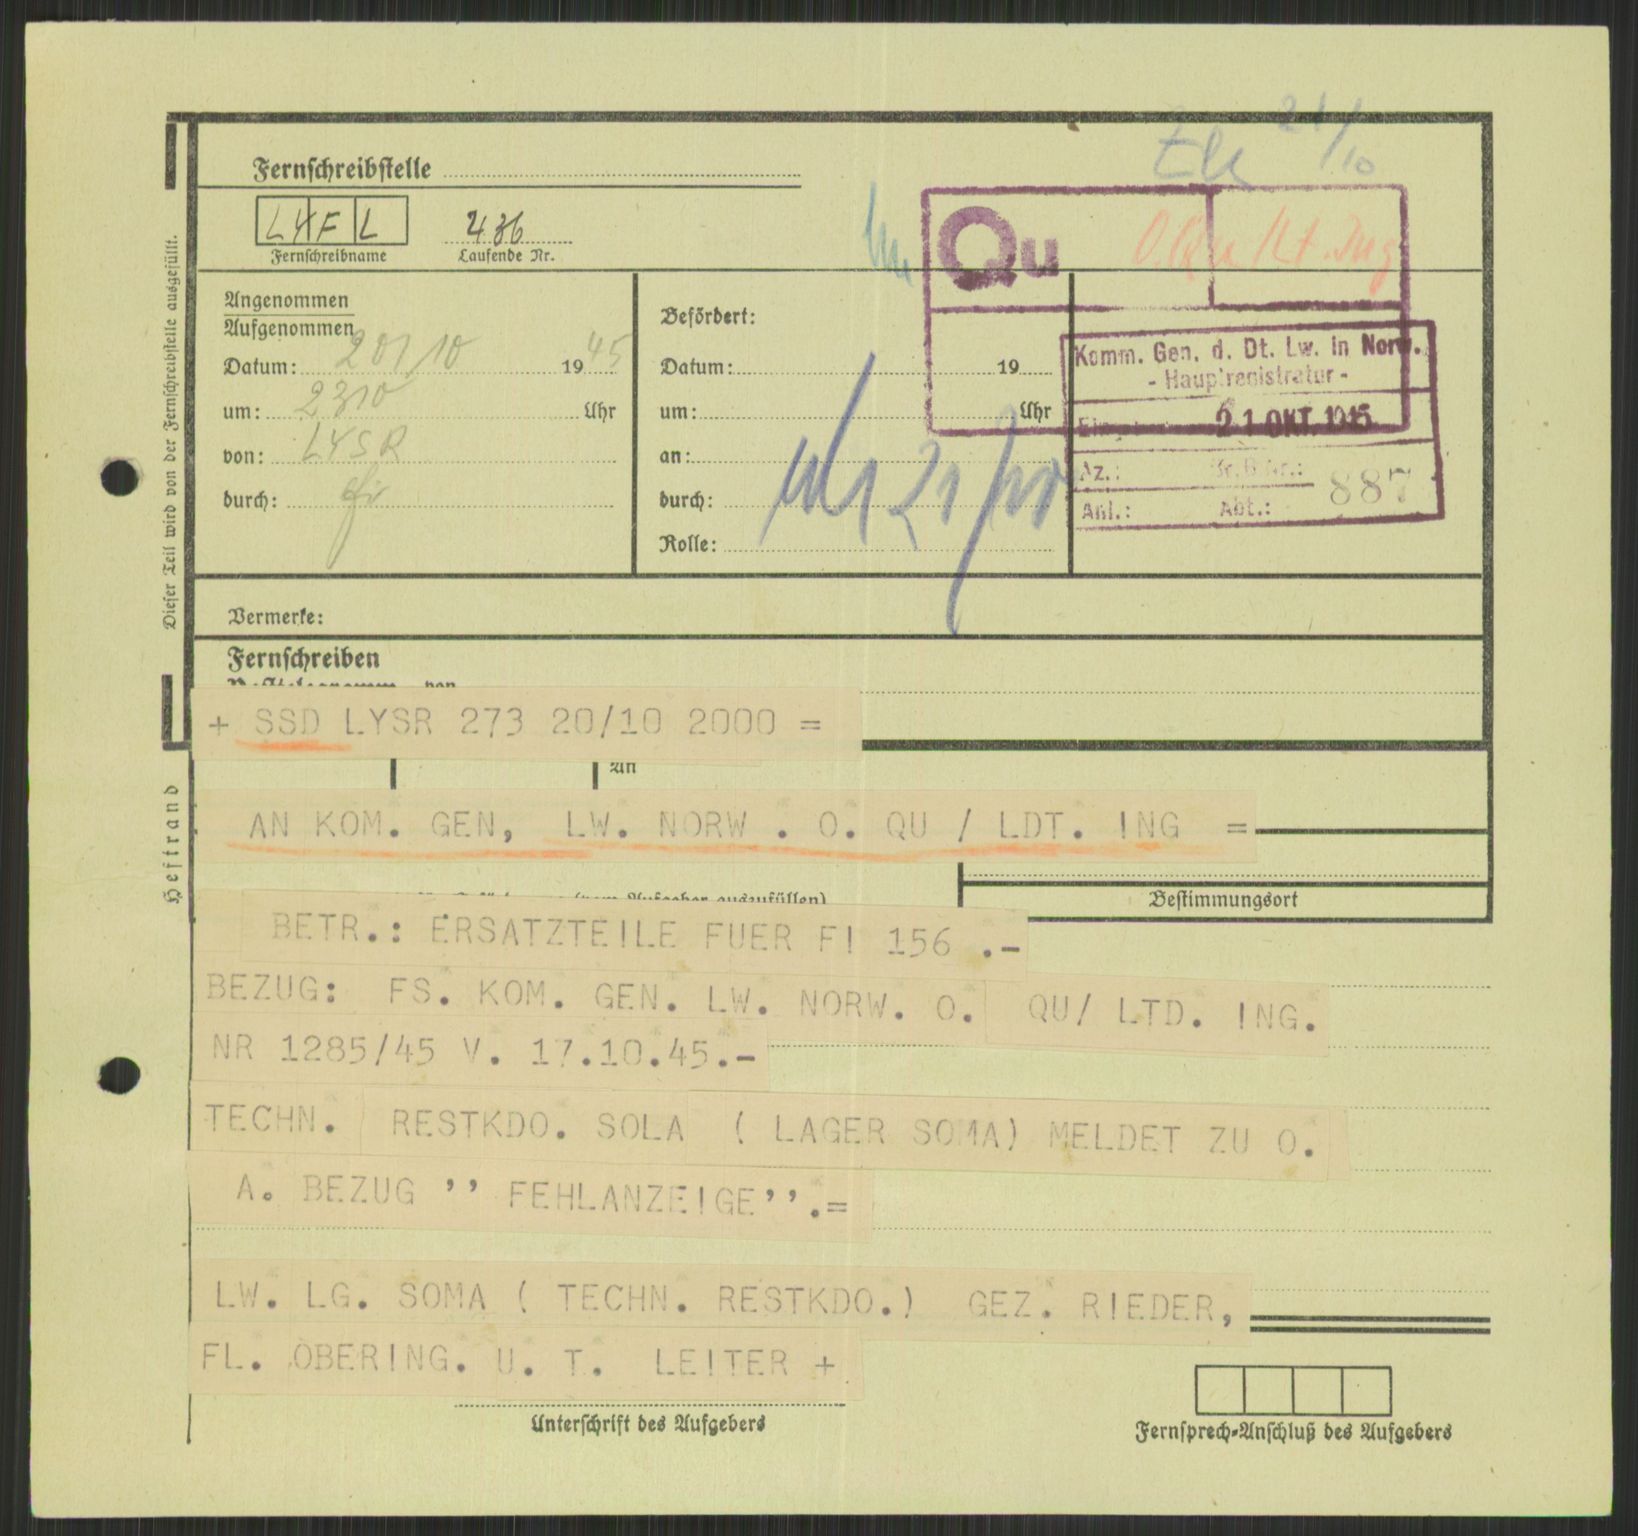 21/10
Fernschreibstelle
LYFL 436
Fernschreibname Laufende Nr.
Qu
O.Qu/Lt.Ing
Angenommen
Aufgenommen
Datum: 20/10 1945
um: 2310 Uhr
von: LYSR
durch:
Befördert:
Datum: 19
um: Uhr
an:
durch: 21/10
Rolle:
Komm. Gen. d. Dt. Lw. in Norw.
- Hauptregistratur -
21 OKT. 1945
Az.: Br.B.Nr.: 887
Anl.: Abt.:
Dieser Teil wird von der Fernschreibstelle ausgefüllt.
Vermerke:
Fernschreiben
von
+ SSD LYSR 273 20/10 2000 =
An
AN KOM. GEN, LW. NORW . O. QU / LDT. ING =
Heftrand
(vom Aufgeber auszufüllen)
Bestimmungsort
BETR.: ERSATZTEILE FUER FI 156 .-
BEZUG: FS. KOM. GEN. LW. NORW. O. QU/ LTD. ING.
NR 1285/45 V. 17.10.45.-
TECHN. RESTKDO. SOLA ( LAGER SOMA) MELDET ZU O.
A. BEZUG '' FEHLANZEIGE''.=
LW. LG. SOMA ( TECHN. RESTKDO.) GEZ. RIEDER,
FL. OBERING. U. T. LEITER +
Unterschrift des Aufgebers
Fernsprech-Anschluß des Aufgebers